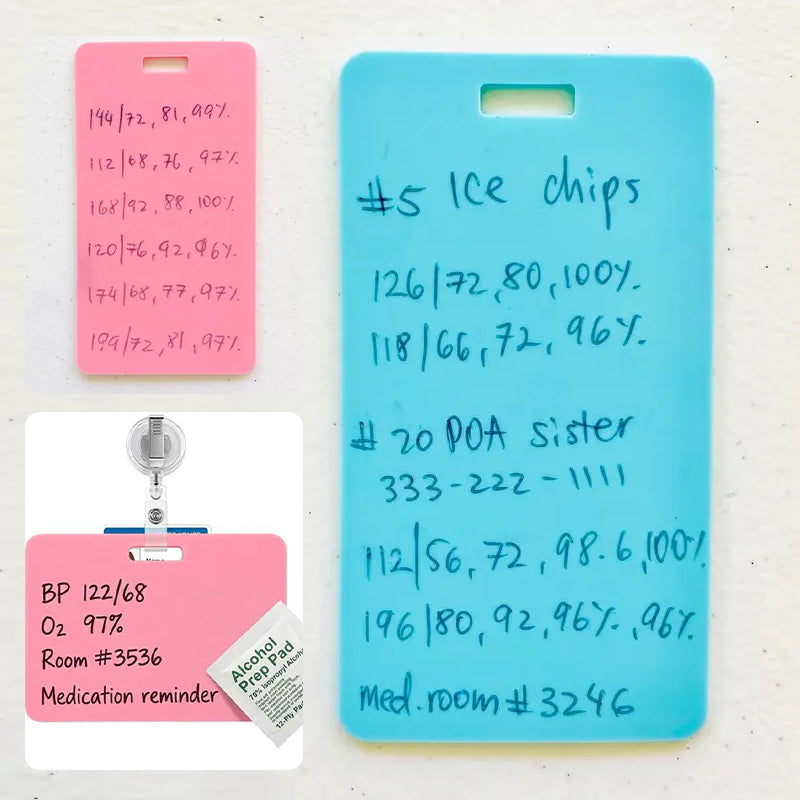 144/72, 81, 99%.
112/68, 76, 97%.
168/92, 88, 100%.
120/76, 92, 96%.
174/68, 77, 97%.
199/72, 81, 97%.
#5 Ice chips
126/72, 80, 100%.
118/66, 72, 96%.
#20 POA sister
333-222-1111
112/56, 72, 98.6, 100%.
196/80, 92, 96%., 96%.
med. room #3246
BP 122/68
O2 97%
Room #3536
Medication reminder
Alcohol
Prep Pad
70% Isopropyl Alcohol
12-Ply Pad